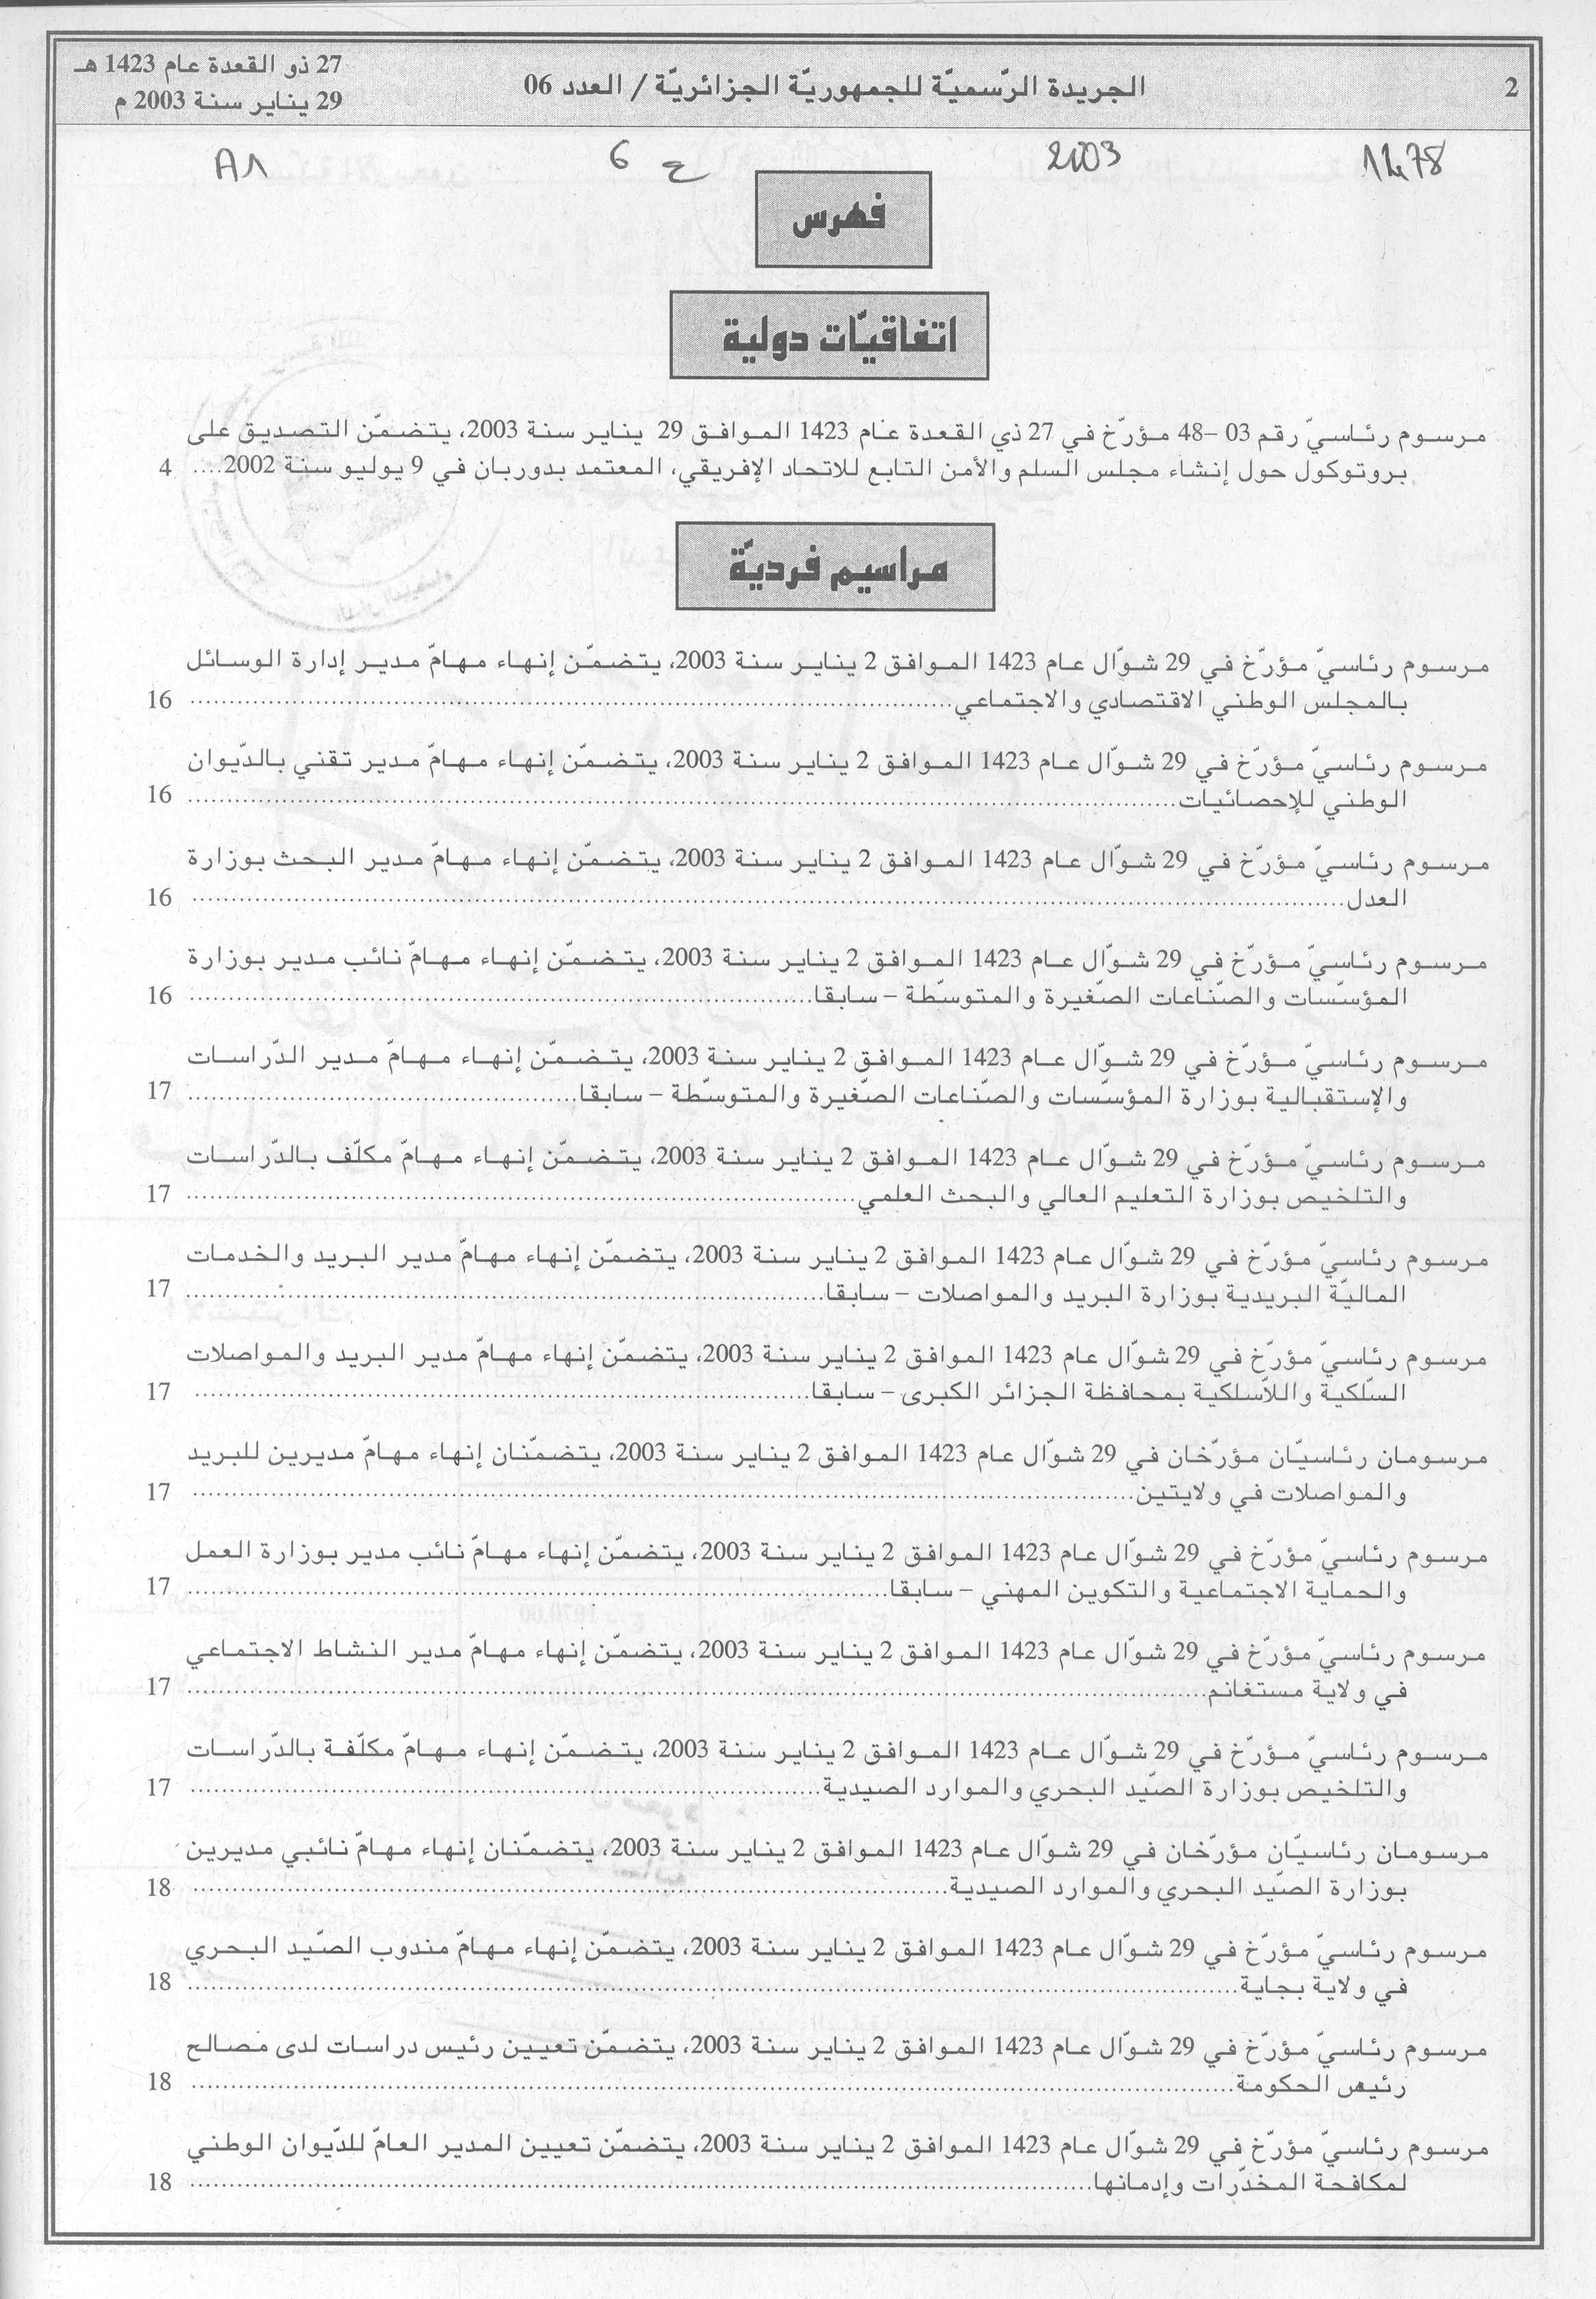 2
الجريدة الرّسميّة للجمهوريّة الجزائريّة / العدد 06
27 ذو القعدة عام 1423 هـ
29 يناير سنة 2003 م
2003
ع 6
A1
فهرس
اتفاقيّات دولية
مرسوم رئاسيّ رقم 03 –48 مؤرّخ في 27 ذي القعدة عام 1423 الموافق 29 يناير سنة 2003، يتضمّن التصديق على
بروتوكول حول إنشاء مجلس السلم والأمن التابع للاتحاد الإفريقي، المعتمد بدوربان في 9 يوليو سنة 2002.... 4
مراسيم فرديّة
مرسوم رئاسيّ مؤرّخ في 29 شوّال عام 1423 الموافق 2 يناير سنة 2003، يتضمّن إنهاء مهامّ مدير إدارة الوسائل
بالمجلس الوطني الاقتصادي والاجتماعي........ 16
مرسوم رئاسيّ مؤرّخ في 29 شوّال عام 1423 الموافق 2 يناير سنة 2003، يتضمّن إنهاء مهامّ مدير تقني بالدّيوان
الوطني للإحصائيات........ 16
مرسوم رئاسيّ مؤرّخ في 29 شوّال عام 1423 الموافق 2 يناير سنة 2003، يتضمّن إنهاء مهامّ مدير البحث بوزارة
العدل........ 16
مرسوم رئاسيّ مؤرّخ في 29 شوّال عام 1423 الموافق 2 يناير سنة 2003، يتضمّن إنهاء مهامّ نائب مدير بوزارة
المؤسّسات والصّناعات الصّغيرة والمتوسّطة – سابقا........ 16
مرسوم رئاسيّ مؤرّخ في 29 شوّال عام 1423 الموافق 2 يناير سنة 2003، يتضمّن إنهاء مهامّ مدير الدّراسات
والإستقبالية بوزارة المؤسّسات والصّناعات الصّغيرة والمتوسّطة – سابقا........ 17
مرسوم رئاسيّ مؤرّخ في 29 شوّال عام 1423 الموافق 2 يناير سنة 2003، يتضمّن إنهاء مهامّ مكلّف بالدّراسات
والتلخيص بوزارة التعليم العالي والبحث العلمي........ 17
مرسوم رئاسيّ مؤرّخ في 29 شوّال عام 1423 الموافق 2 يناير سنة 2003، يتضمّن إنهاء مهامّ مدير البريد والخدمات
الماليّة البريدية بوزارة البريد والمواصلات – سابقا........ 17
مرسوم رئاسيّ مؤرّخ في 29 شوّال عام 1423 الموافق 2 يناير سنة 2003، يتضمّن إنهاء مهامّ مدير البريد والمواصلات
السّلكية واللاّسلكية بمحافظة الجزائر الكبرى – سابقا........ 17
مرسومان رئاسيّان مؤرّخان في 29 شوّال عام 1423 الموافق 2 يناير سنة 2003، يتضمّنان إنهاء مهامّ مديرين للبريد
والمواصلات في ولايتين........ 17
مرسوم رئاسيّ مؤرّخ في 29 شوّال عام 1423 الموافق 2 يناير سنة 2003، يتضمّن إنهاء مهامّ نائب مدير بوزارة العمل
والحماية الاجتماعية والتكوين المهني – سابقا........ 17
مرسوم رئاسيّ مؤرّخ في 29 شوّال عام 1423 الموافق 2 يناير سنة 2003، يتضمّن إنهاء مهامّ مدير النشاط الاجتماعي
في ولاية مستغانم........ 17
مرسوم رئاسيّ مؤرّخ في 29 شوّال عام 1423 الموافق 2 يناير سنة 2003، يتضمّن إنهاء مهامّ مكلّفة بالدّراسات
والتلخيص بوزارة الصّيد البحري والموارد الصيدية........ 17
مرسومان رئاسيّان مؤرّخان في 29 شوّال عام 1423 الموافق 2 يناير سنة 2003، يتضمّنان إنهاء مهامّ نائبي مديرين
بوزارة الصّيد البحري والموارد الصيدية........ 18
مرسوم رئاسيّ مؤرّخ في 29 شوّال عام 1423 الموافق 2 يناير سنة 2003، يتضمّن إنهاء مهامّ مندوب الصّيد البحري
في ولاية بجاية........ 18
مرسوم رئاسيّ مؤرّخ في 29 شوّال عام 1423 الموافق 2 يناير سنة 2003، يتضمّن تعيين رئيس دراسات لدى مصالح
رئيس الحكومة........ 18
مرسوم رئاسيّ مؤرّخ في 29 شوّال عام 1423 الموافق 2 يناير سنة 2003، يتضمّن تعيين المدير العامّ للدّيوان الوطني
لمكافحة المخدّرات وإدمانها........ 18